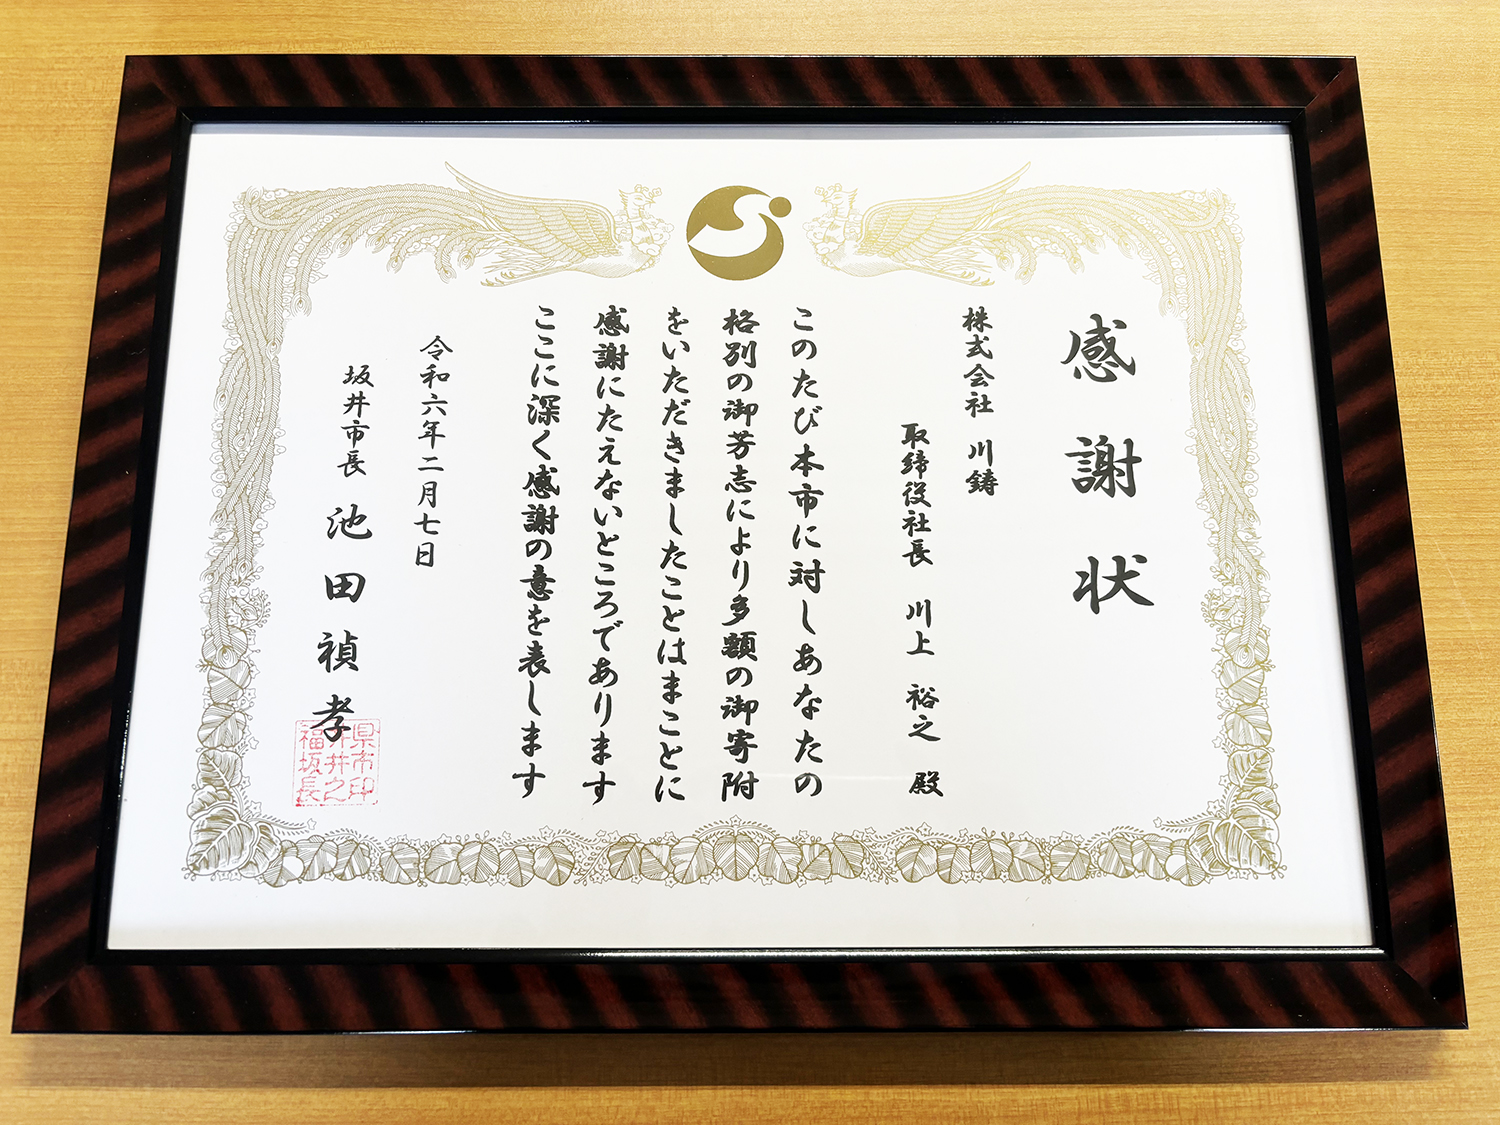 感謝状
株式会社 川鋳
取締役社長 川上 裕之 殿
このたび本市に対しあなたの
格別の御芳志により多額の御寄附
をいただきましたことはまことに
感謝にたえないところであります
ここに深く感謝の意を表します
令和六年二月七日
坂井市長 池田禎孝
県市印
井井之
福坂長